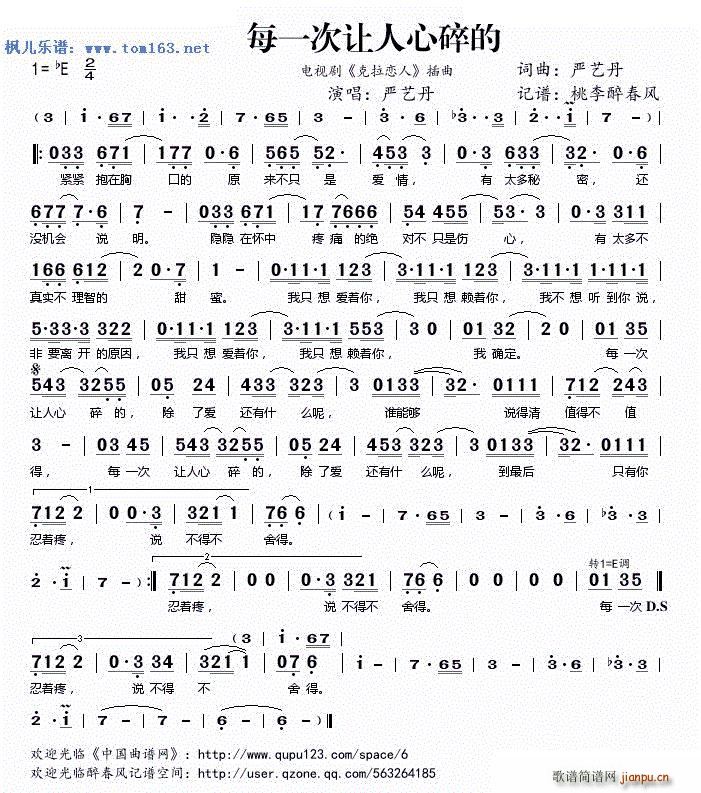 枫儿乐谱：www.tom163.net
每一次让人心碎的
1=♭E 2/4
电视剧《克拉恋人》插曲
词曲：严艺丹
演唱：严艺丹
记谱：桃李醉春风
(3 | i·67 | i·2 | 7·65 | 3 - | i·6 | ♭3·3 | 2·i | 7 - ) |
‖: 033 671 | 177 0·6 | 565 52· | 453 3 | 0·3 633 | 32· 0·6 |
紧紧 抱在胸 口的 原 来不只 是 爱 情， 有 太多秘 密， 还
677 7·6 | 7 - | 033 671 | 17 7666 | 54 455 | 53· 3 | 0·3 311 |
没机会 说 明。 隐隐 在怀中 疼 痛的绝 对不 只是伤 心， 有 太多不
166 612 | 2 0·7 | 1 - | 0·11·1 123 | 3·11·1 123 | 3·11·1 331 |
真实不 理智的 甜 蜜。 我只 想 爱着你， 我只 想 赖着你， 我不 想 听到你 说，
5·33·3 322 | 0·11·1 123 | 3·11·1 553 | 3 0 | 01 12 | 02 0 | 01 35 |
非 要离 开 的原因， 我只 想 爱着你， 我只 想 赖着你， 我 确定。 每 一次
543 3255 | 05 24 | 433 323 | 3 0133 | 32· 0111 | 712 243 |
让人心 碎 的， 除 了爱 还有什 么呢， 谁能够 说得清 值得不 值
3 - | 03 45 | 543 3255 | 05 24 | 453 323 | 3 0133 | 32· 0111 |
得， 每 一次 让人心 碎 的， 除 了爱 还有什 么呢， 到最后 只有你
1
712 2 | 00·3 | 321 1 | 76 6 | (i - | 7·65 | 3 - | 3·6 | ♭3·3 |
忍着疼， 说 不得不 舍得。
2
2·i | 7 - ) :‖ 712 2 | 0 0 | 0·3 321 | 76 6 | 0 0 | 0 0 | 01 35 ‖
转1=E调
忍着疼， 说 不得不 舍得。 每 一次 D.S
3
(3 | i·67 |
712 2 | 0·3 34 | 321 1 | 07 6 | i·2 | 7·65 | 3 - | i·6 | ♭3·3 |
忍着疼， 说 不得 不 舍 得。
2·i | 7 - | 7·6 | 6 - | 6 - ) ‖
欢迎光临《中国曲谱网》：http://www.qupu123.com/space/6
欢迎光临醉春风记谱空间：http://user.qzone.qq.com/563264185
歌谱简谱网 jianpu.cn